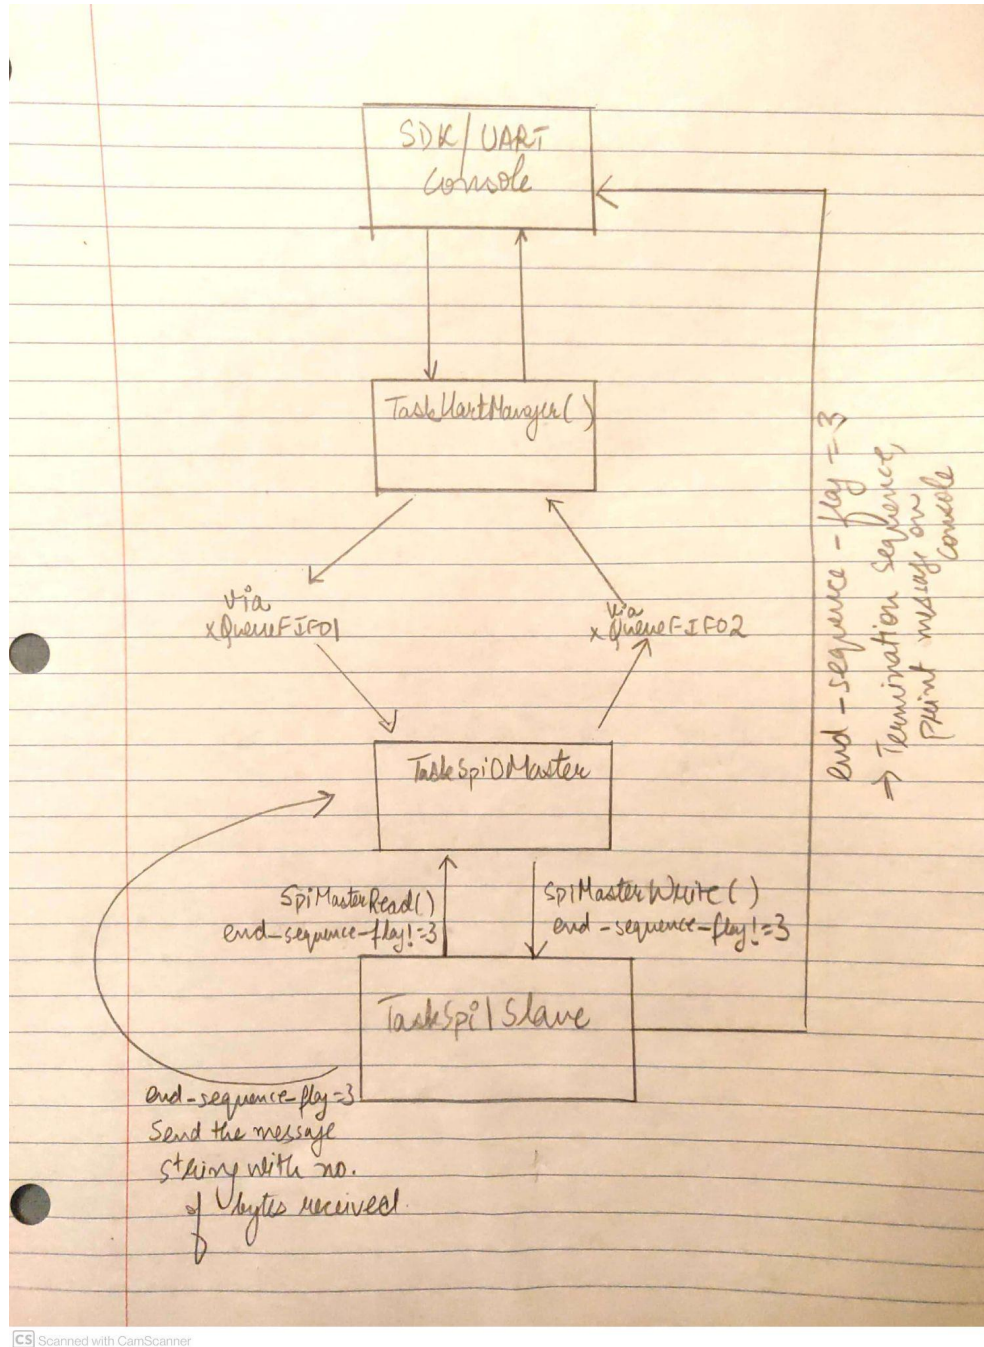 SDK/UART
Console
TaskUartManger()
via
xQueueFIFO1
via
xQueueFIFO2
TaskSpi0Master
SpiMasterRead()
end_sequence_flag!=3
SpiMasterWrite()
end_sequence_flag!=3
TaskSpi1Slave
end_sequence_flag=3
Send the message
string with no.
of bytes received.
end_sequence_flag=3
→ Termination sequence,
print message on
console
CS Scanned with CamScanner